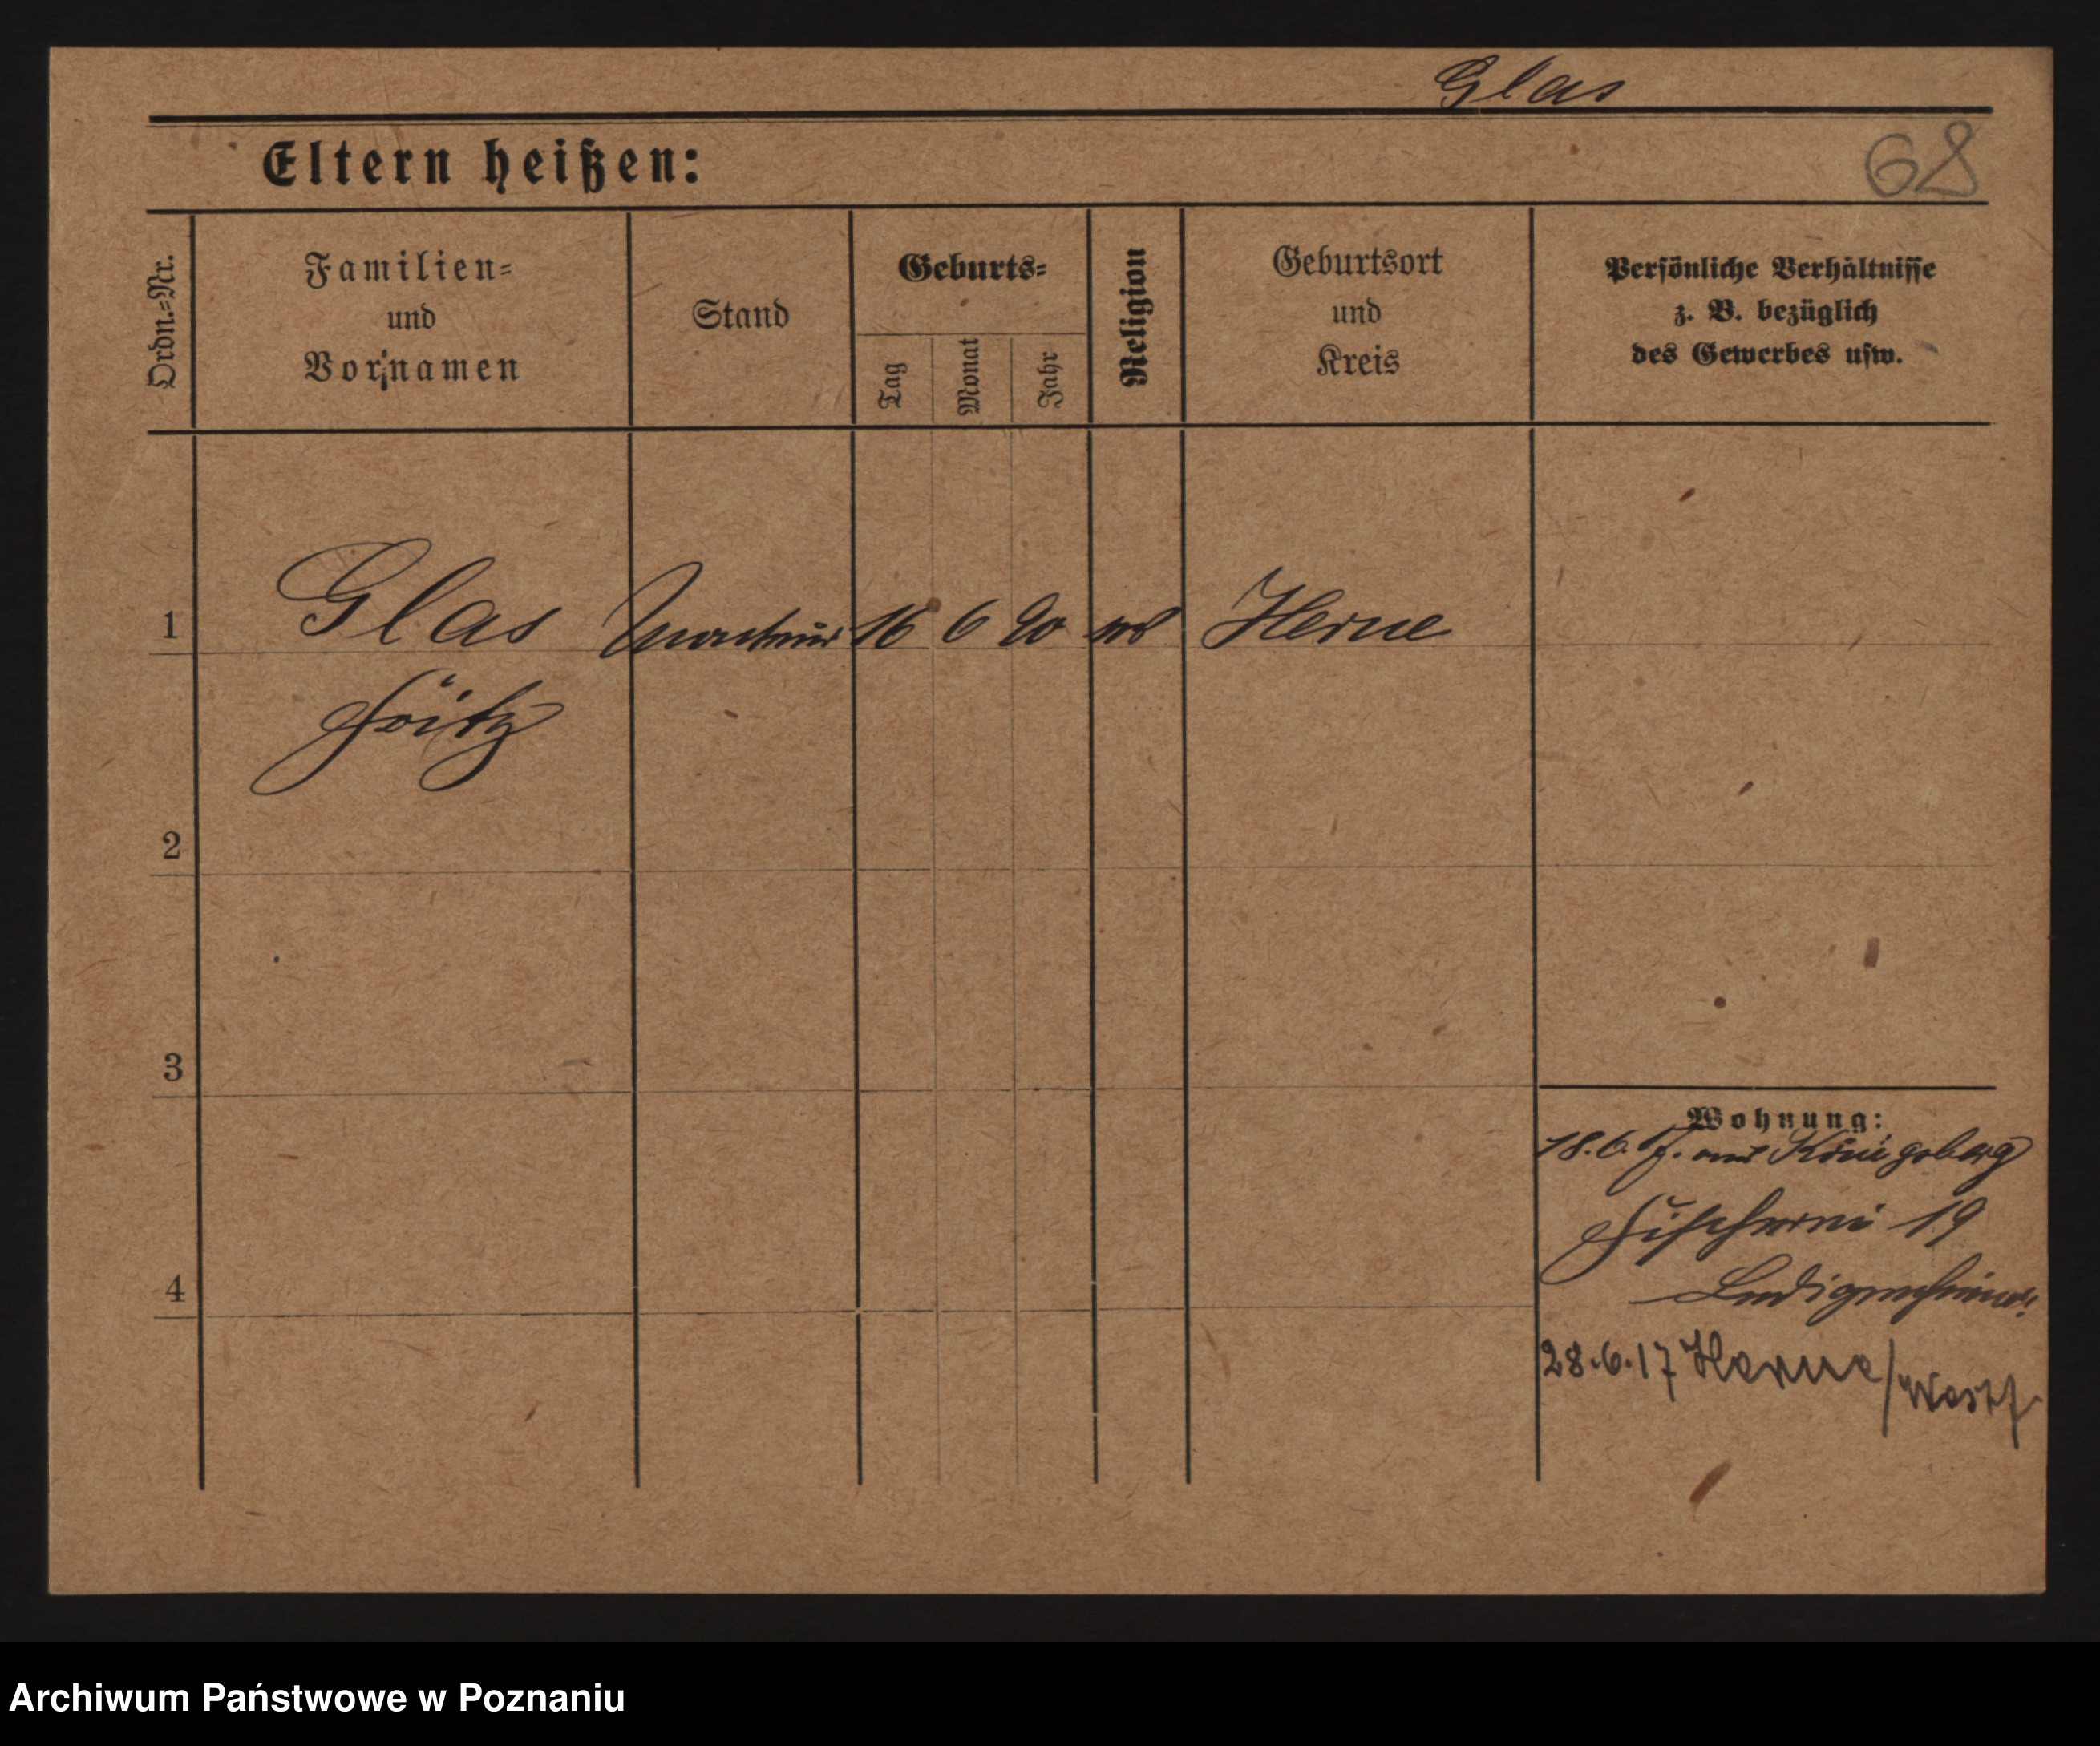 Glas
Eltern heißen:
68
Ordn.=Nr.
Familien=
und
Vornamen
Stand
Geburts=
Tag
Monat
Jahr
Religion
Geburtsort
und
Kreis
Persönliche Verhältnisse
z. B. bezüglich
des Gewerbes usw.
1 Glas Monteur 16 6 90 Herne
Fritz
2
3
4
Wohnung:
18.6.17. aus Königsberg
Fischerei 19
Ledigenheim
28.6.17 Herne/Westf
Archiwum Państwowe w Poznaniu